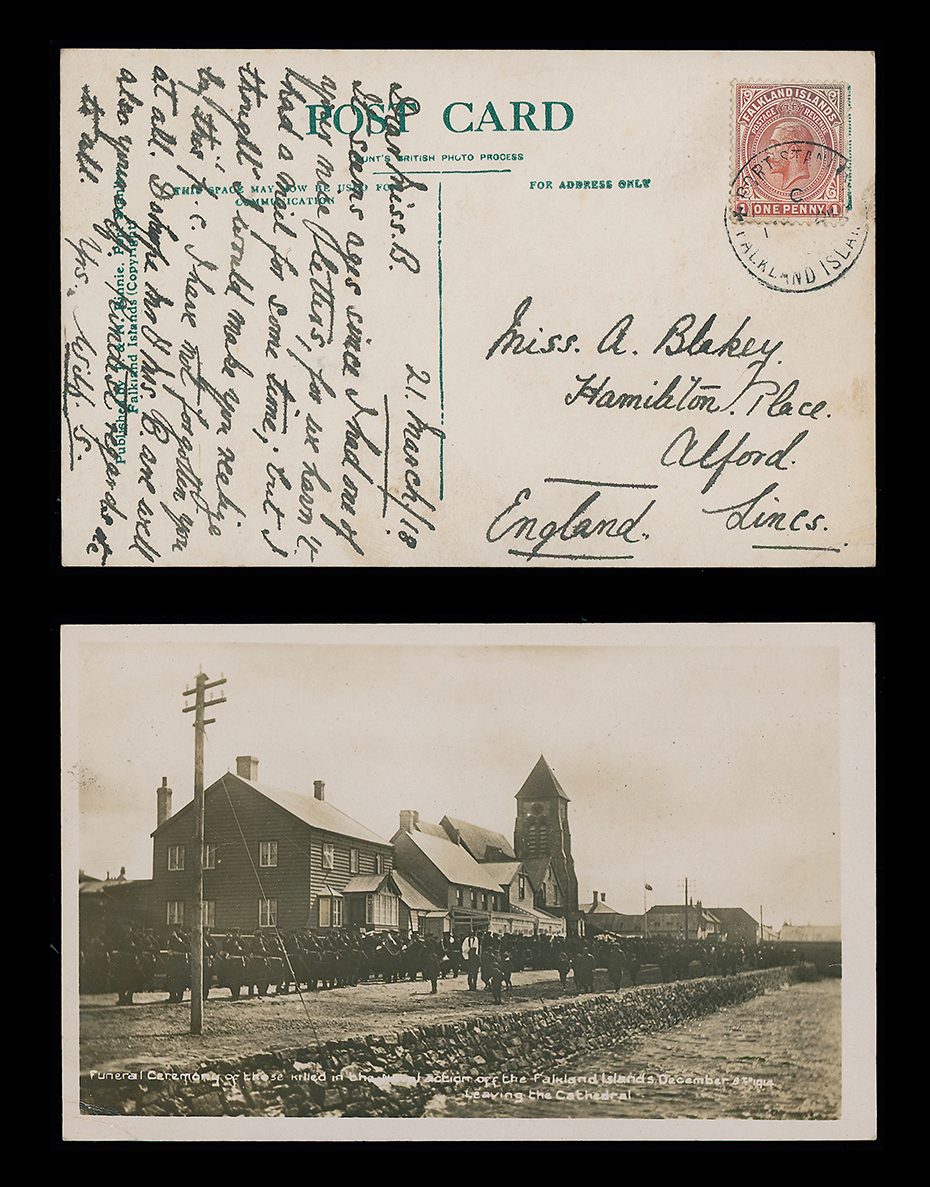 POST CARD
HUNT'S BRITISH PHOTO PROCESS
THIS SPACE MAY NOW BE USED FOR
COMMUNICATION
FOR ADDRESS ONLY
FALKLAND ISLANDS
POSTAGE REVENUE
1 ONE PENNY 1
PORT STANLEY
FALKLAND ISLANDS
Miss. A. Blakey.
Hamilton. Place.
Alford.
Lincs.
England.
21. March/18
Dear Miss. B.
It seems ages since I had one of
your nice letters, for we haven't
had a mail for some time, but I
thought I would make you
by this p. c. I have not forgotten you
at all. I hope Mr & Mrs. C. are well
also yourself. Kindest regards
to all.
Yrs.
Published by & Binnie, Port
Falkland Islands (Copyright)
Funeral Ceremony of those killed in the Naval action off the Falkland Islands, December 8TH 1914.
Leaving the Cathedral